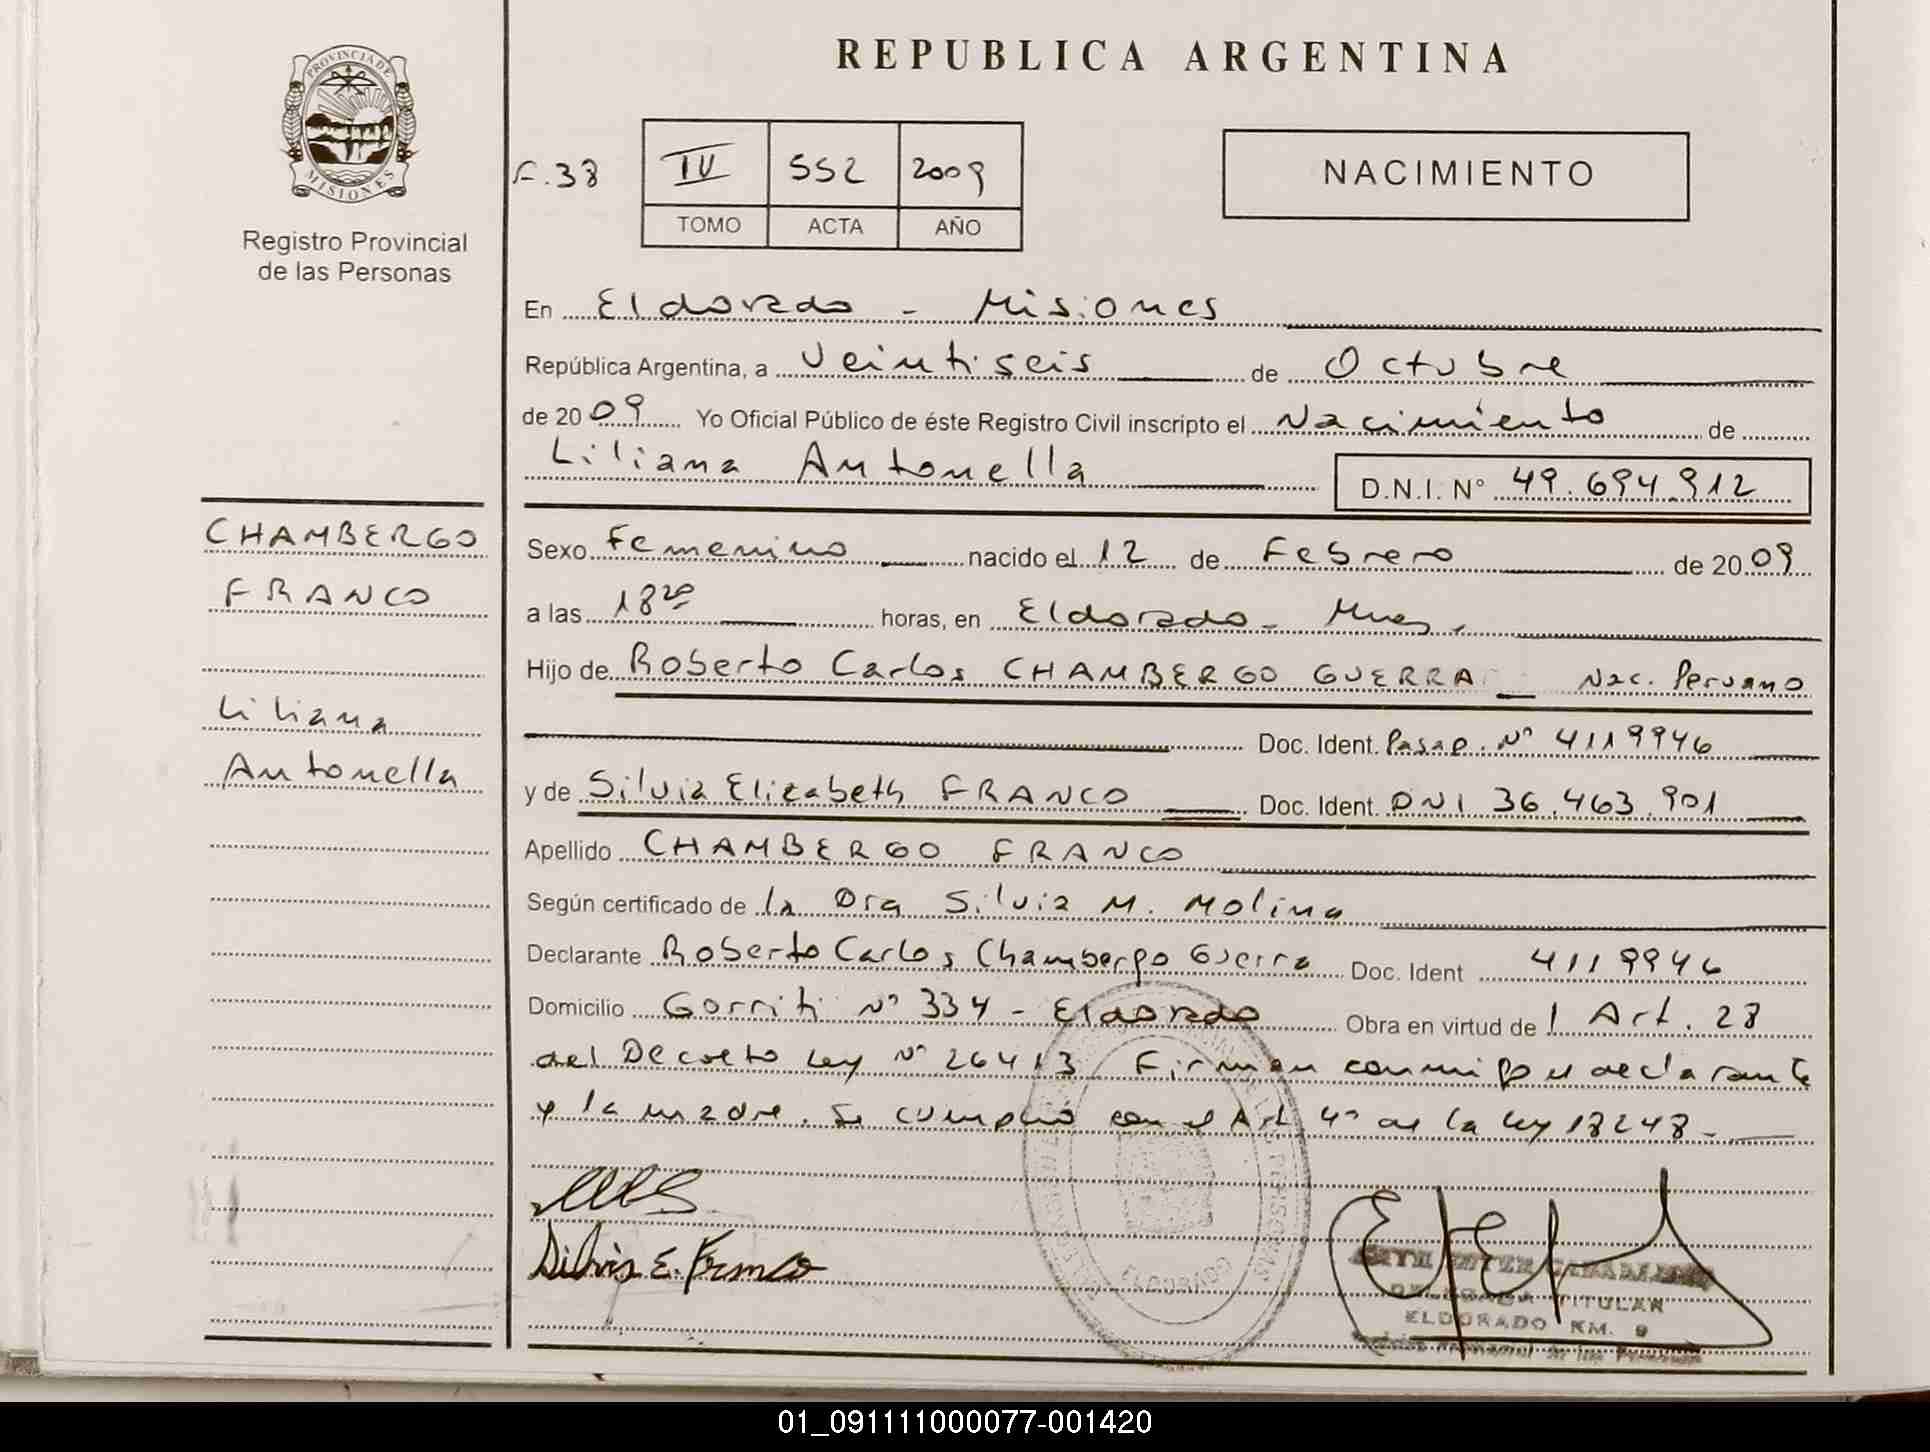 PROVINCIA DE
MISIONES
Registro Provincial
de las Personas
CHAMBERGO
FRANCO
Liliana
Antonella
REPUBLICA ARGENTINA
F. 38
IV 552 2009
TOMO ACTA AÑO
NACIMIENTO
En Eldorado - Misiones
República Argentina, a Veintiseis de Octubre
de 2009 Yo Oficial Público de éste Registro Civil inscripto el Nacimiento de
Liliana Antonella D.N.I. N° 49.694.912
Sexo Femenino nacido el 12 de Febrero de 2009
a las 18 20 horas, en Eldorado - Mnes.
Hijo de Roberto Carlos CHAMBERGO GUERRA Nac. Peruano
Doc. Ident. Pasap. N° 4119946
y de Silvia Elizabeth FRANCO Doc. Ident. DNI 36.463.901
Apellido CHAMBERGO FRANCO
Según certificado de la Dra Silvia M. Molina
Declarante Roberto Carlos Chambergo Guerra Doc. Ident 4119946
Domicilio Gorriti N° 334 - Eldorado Obra en virtud del Art. 28
del Decreto Ley N° 26413 Firman conmigo el declarante
y la madre. Se cumplió con el Art 4° de la Ley 18248.-
Silvia E. Franco
ELDORADO
DELEGADA TITULAR
ELDORADO KM. 9
01_091111000077-001420